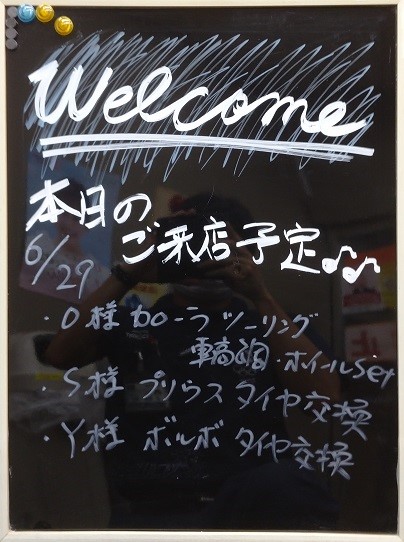 Welcome
本日の
ご来店予定♪♪
6/29
・O様 カローラツーリング
車高調・ホイールset
・S様 プリウス タイヤ交換
・Y様 ボルボ タイヤ交換